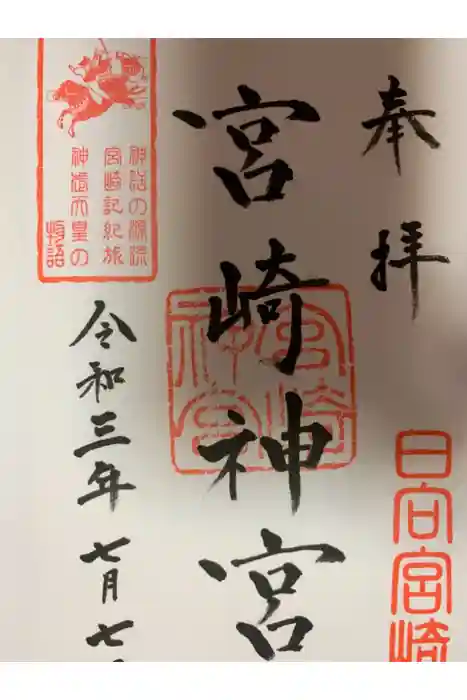 奉拝
日向宮崎
宮崎神宮
宮崎神宮
神話の源流
宮崎記紀旅
神武天皇の
物語
令和三年七月七